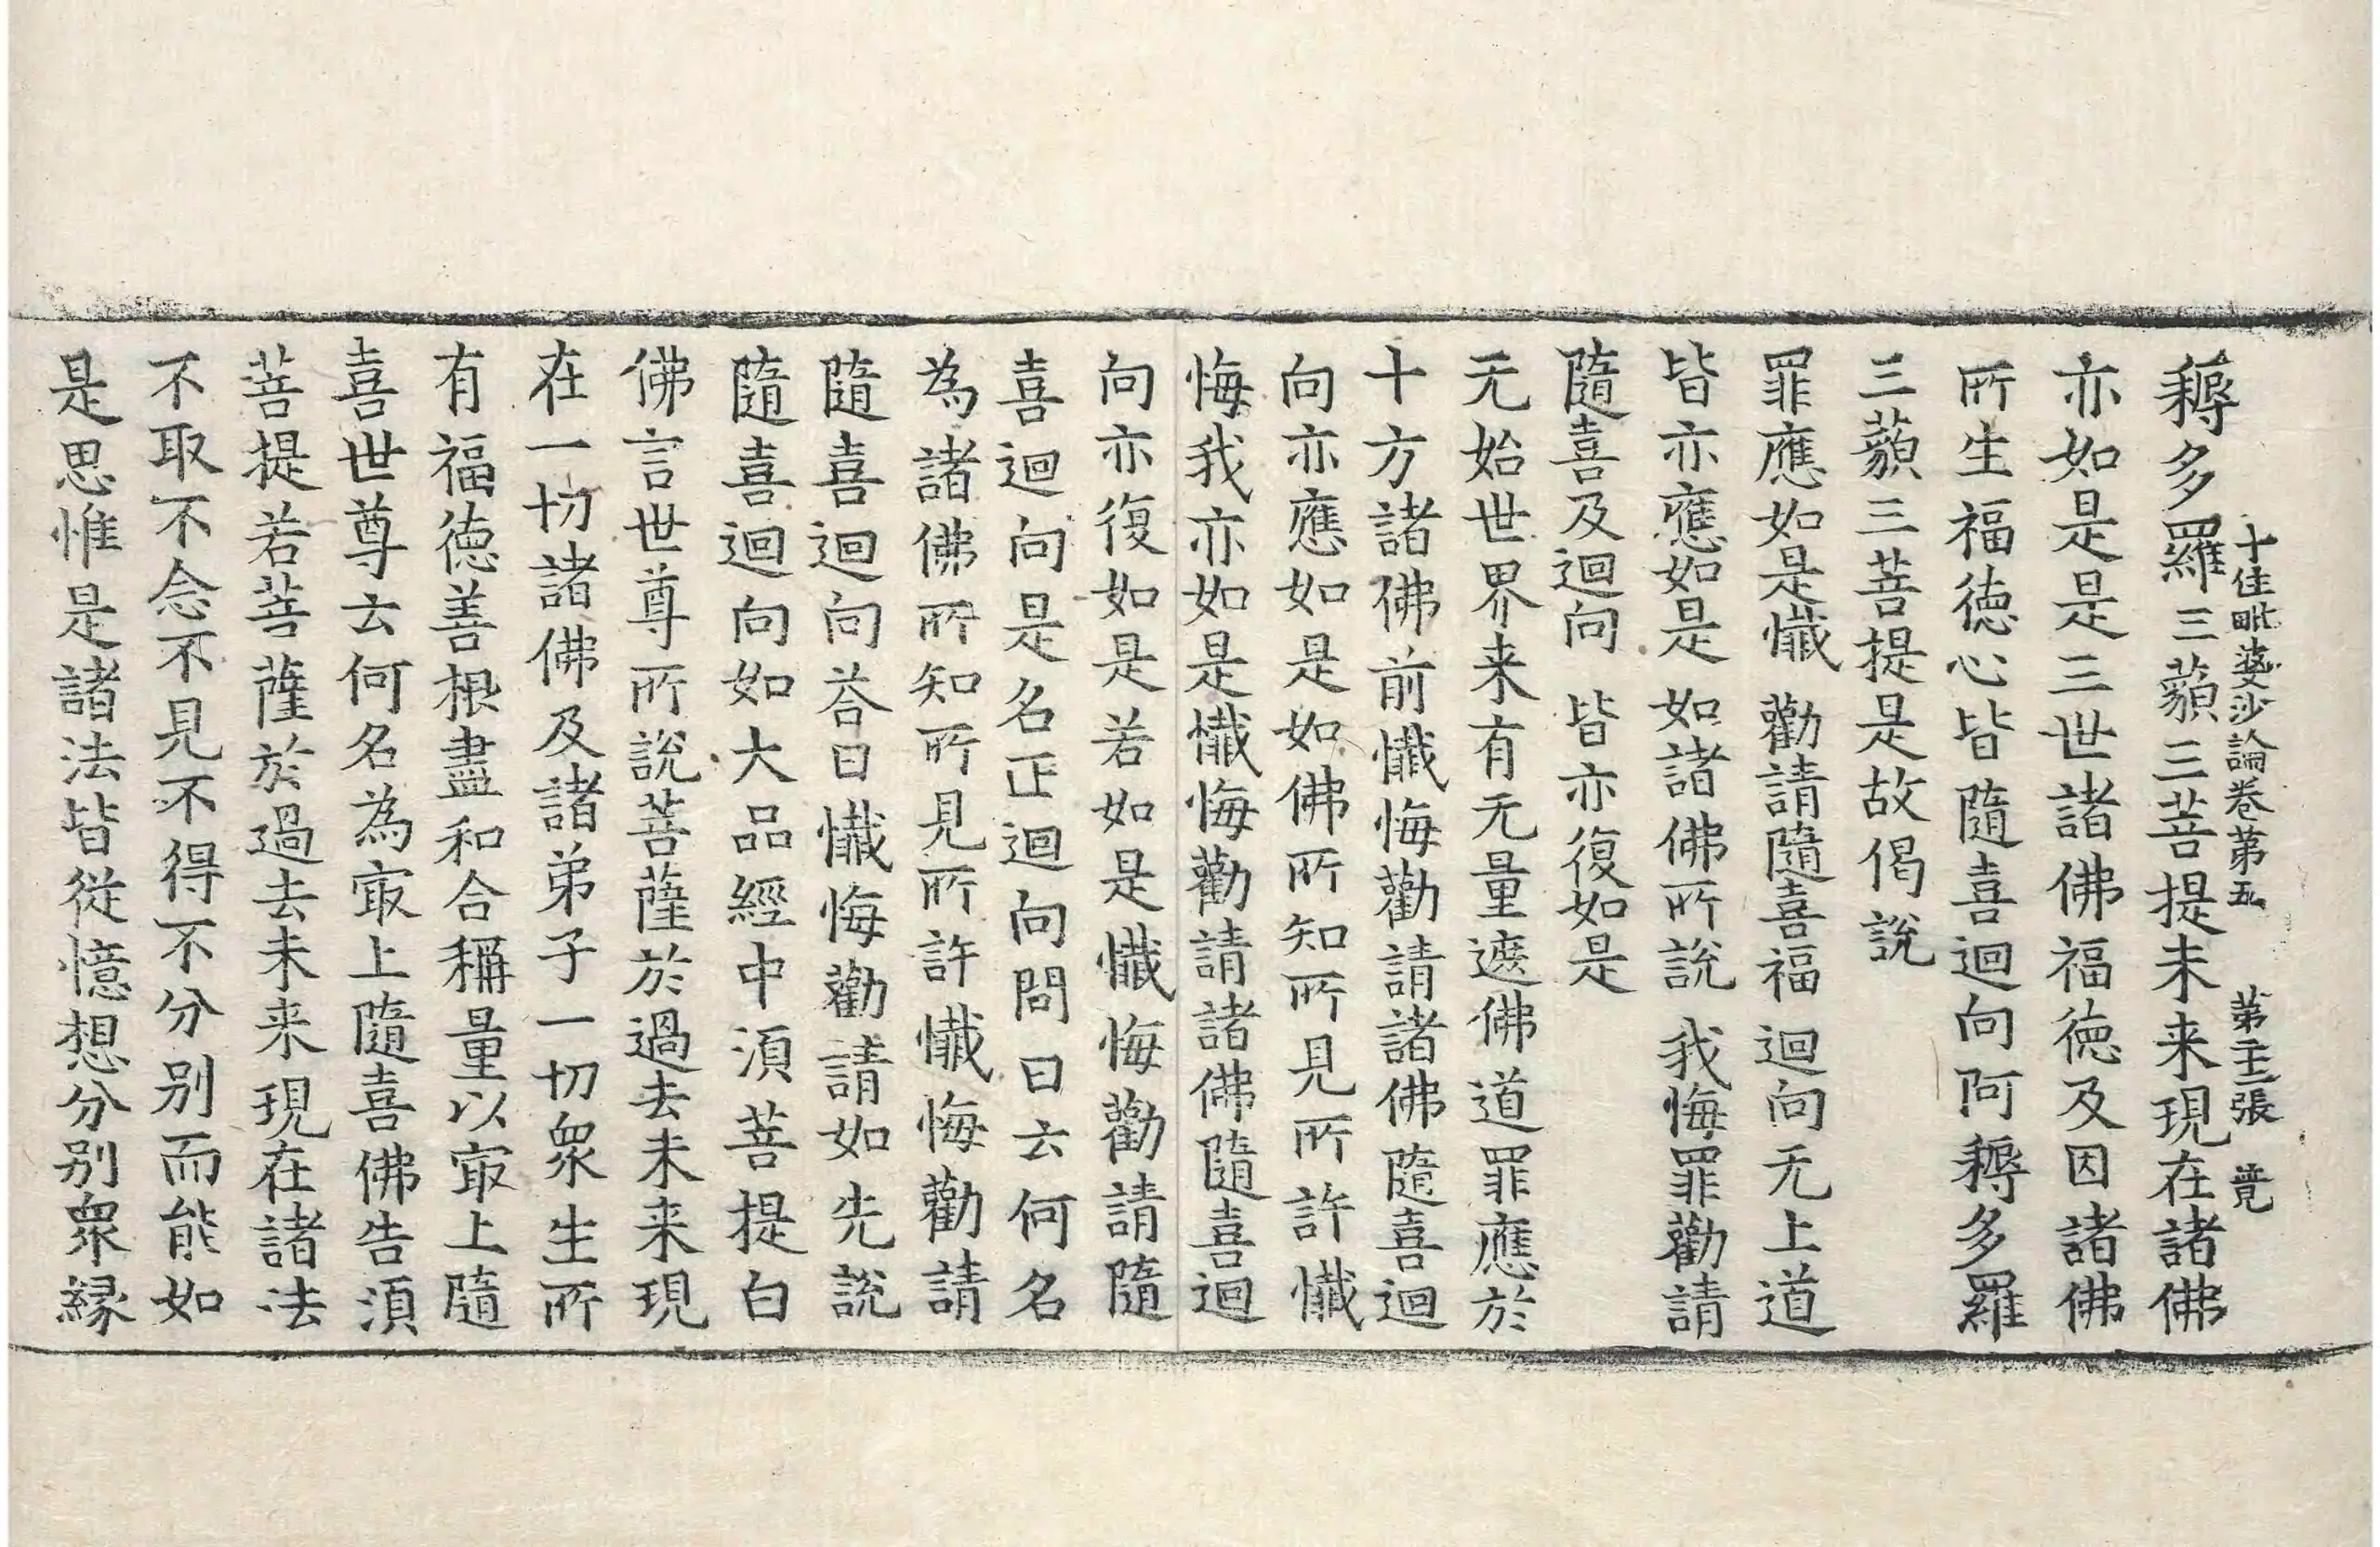 十住毗婆沙論卷第五　第十二張　竟
耨多羅三藐三菩提未来現在諸佛
亦如是是三世諸佛福徳及因諸佛
所生福徳心皆隨喜迴向阿耨多羅
三藐三菩提是故偈說
罪應如是懺　勸請隨喜福　迴向无上道
皆亦應如是　如諸佛所說　我悔罪勸請
隨喜及迴向　皆亦復如是
无始世界来有无量遮佛道罪應於
十方諸佛前懺悔勸請諸佛隨喜迴
向亦應如是如佛所知所見所許懺
悔我亦如是懺悔勸請諸佛隨喜迴
向亦復如是若如是懺悔勸請隨
喜迴向是名正迴向問曰云何名
為諸佛所知所見所許懺悔勸請
隨喜迴向荅曰懺悔勸請如先說
隨喜迴向如大品經中湏菩提白
佛言世尊所說菩薩於過去未来現
在一切諸佛及諸弟子一切衆生所
有福徳善根盡和合稱量以㝡上隨
喜世尊云何名為㝡上隨喜佛告湏
菩提若菩薩於過去未来現在諸法
不取不念不見不得不分别而能如
是思惟是諸法皆從憶想分别衆縁